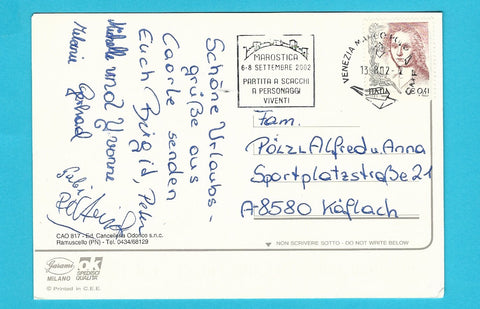 Schöne Urlaubs-
grüße aus
Caorle senden
Euch Birgid, Peter
Michelle und Yvonne
Melanie Gerhad
Gabi
MAROSTICA
6-8 SETTEMBRE 2002
PARTITA A SCACCHI
A PERSONAGGI
VIVENTI
VENEZIA MARCO
ITALIA
€ 0,41
Fam.
PÖLZL Alfred u. Anna
Sportplatzstraße 21
A-8580 Köflach
CAO 817 - Ed. Cancelleria Odorico s.n.c.
Ramuscello (PN) - Tel. 0434/68129
NON SCRIVERE SOTTO - DO NOT WRITE BELOW
Garami
MILANO
SPEDISCI
QUALITÀ
© Printed in C.E.E.